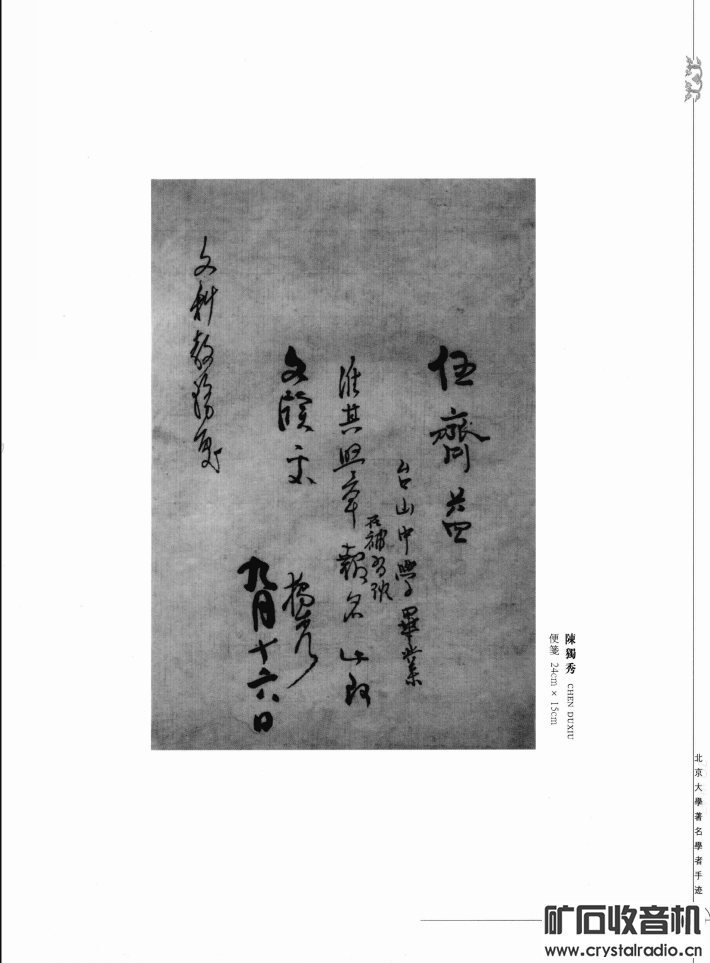 伍齊
台山中學畢業
補習班
准其照章報名此致
文牘
獨秀
九月十六日
文科教務處
陳獨秀 CHEN DUXIU
便箋 24cm × 15cm
北京大學著名學者手迹
矿石收音机
www.crystalradio.cn